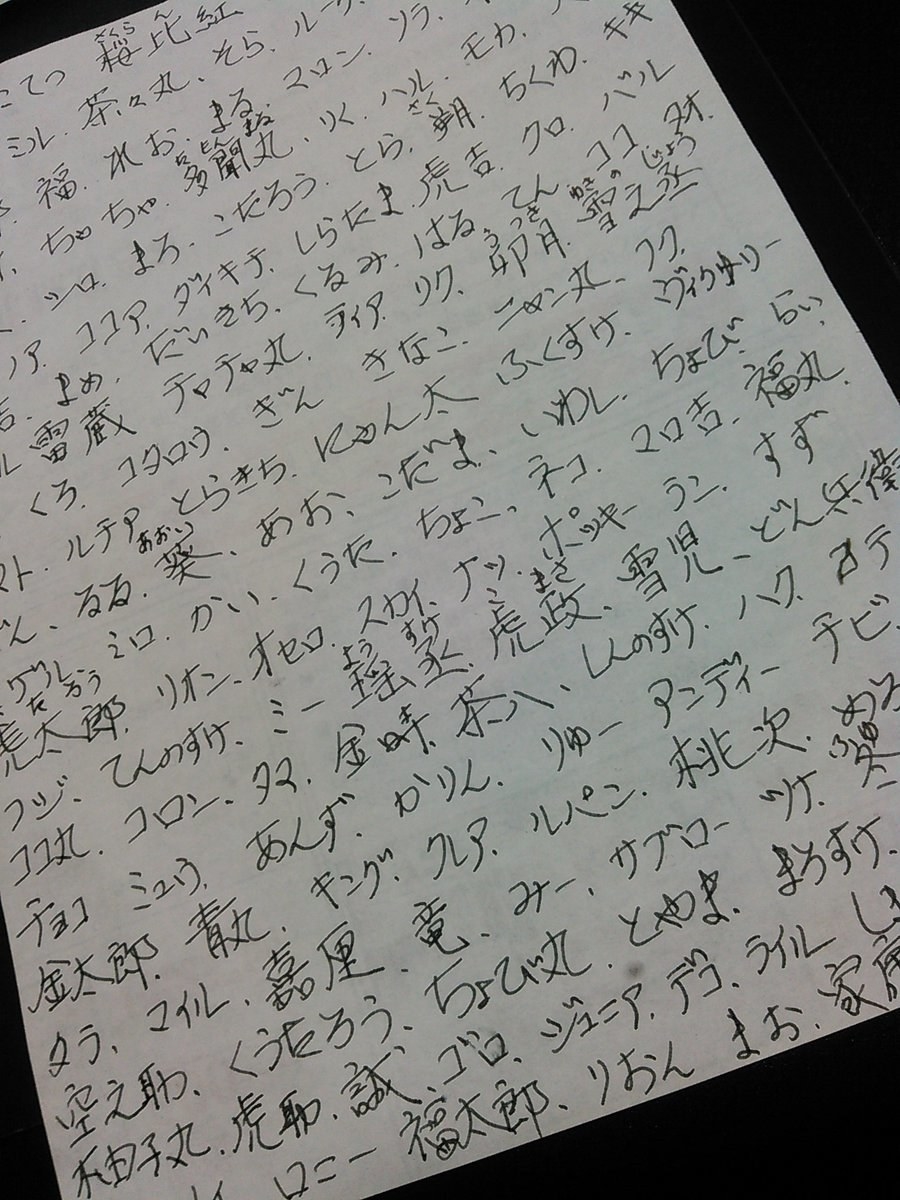 こてつ 桜比紅 さくらん
ミル、茶々丸、そら、ルーク
福、れお、まる、マロン、ソラ
ちゃちゃ、多聞丸 たもんまる、りく、ハル、モカ
シロ、まろ、こたろう、とら、朔 さく、ちくわ、キキ
ノア、ココア、ダイキチ、しらたま、虎吉、クロ、バル
まめ、だいきち、くるみ、はる、てん、ココ、ナオ
雷蔵 チャチャ丸、ティア、リク、卯月 うづき、雪之丞 ゆきのじょう
くろ、コタロウ、ぎん きなこ、ニャン丸、フク、
ルチア とらきち、にゃん太 ふくすけ、ヴィクサリー
るる、葵 あおい、あお、こだま、いわし、ちょび、らい
グル、ミロ、かい、くうた、ちょこ、ネコ、マロ吉、福丸、
虎太郎 こたろう、リオン、オセロ、スカイ、ナツ、ポッキー ラン、すず
フジ、てんのすけ、ミー 瑶丞 ようすけ、虎政 こまさ、雪児、どん兵衛
ココ丸、コロン、タマ、金時、茶八、しんのすけ、ハク、コテ
チョコ ミュウ、あんず、かりん、りゅー アンディー チビ、
金太郎、青丸、キング、クレア、ルパン、桃次、める
タラ、マイル、嘉厘、竜、みー、サブロー ツナ、冬 ふゆ
空之助、くうたろう、ちょび丸、とやま、まろすけ、
柚子丸、虎助、誠、ゴロ、ジュニア、デコ、ライル
ロニー 福太郎、りおん まお、家康